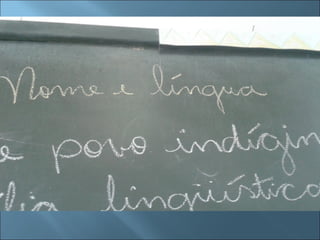 Nome e língua
e povo indígin
ília lingüística